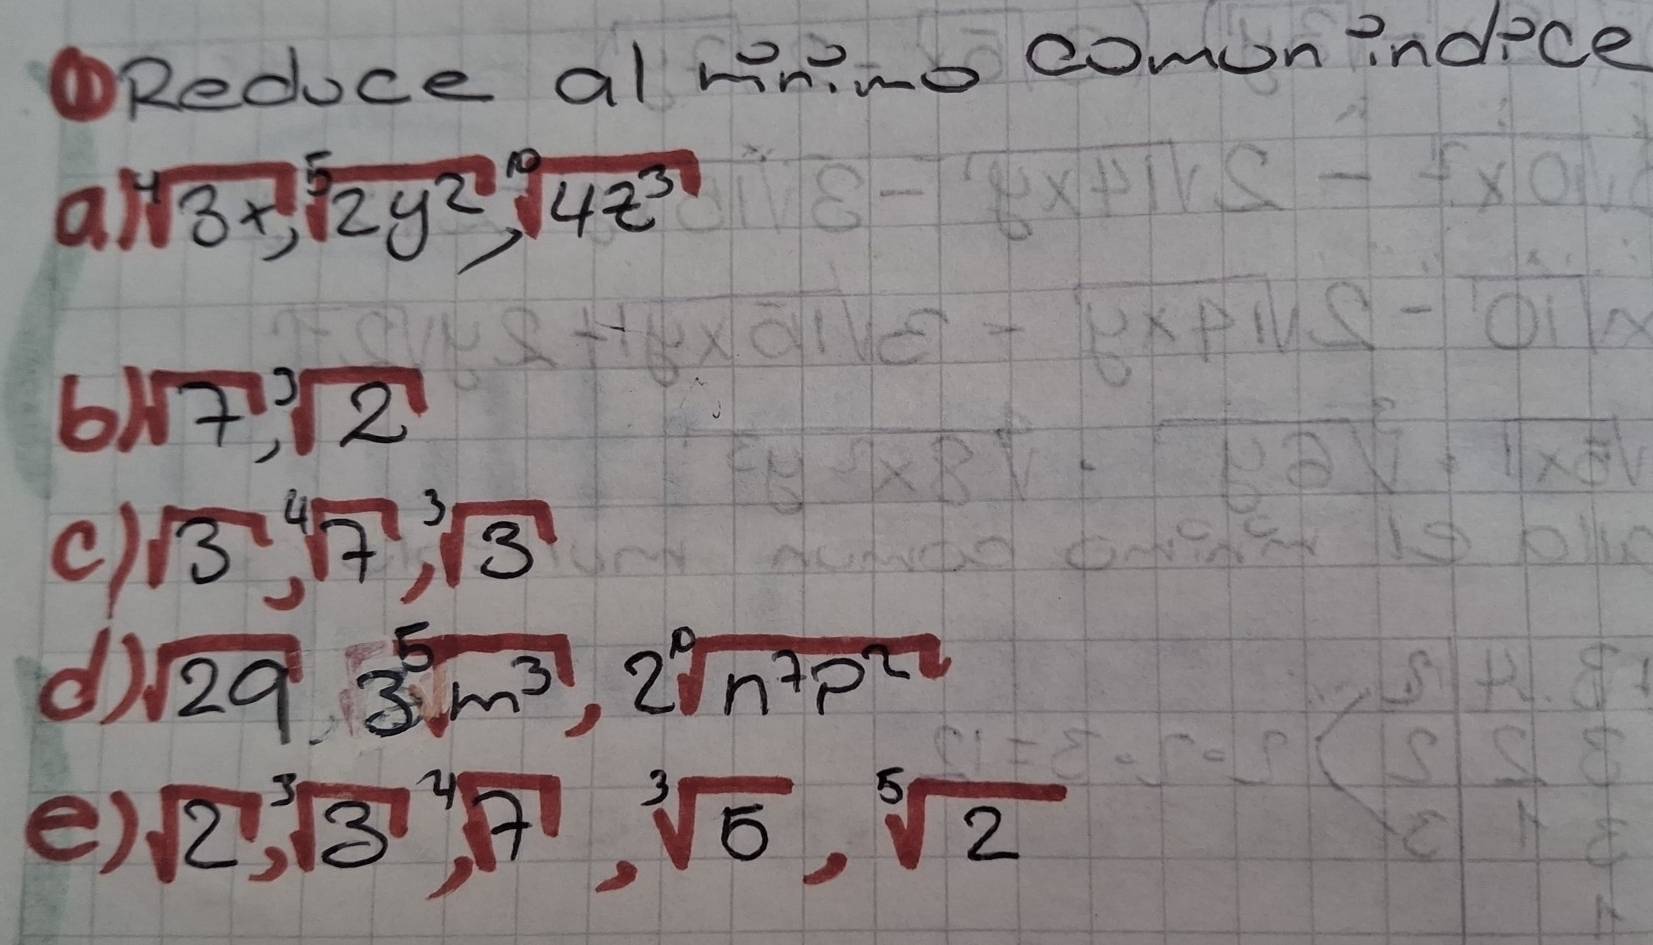 ① Reduce al mínimo comun indice
a) ⁴√3x, ⁵√2y², ¹⁰√4z³
b) √7, ³√2
c) √3, ⁴√7, ³√3
d) √2q, 3⁵√m³, 2¹⁰√n⁷p²
e) √2, ³√3, ⁴√7, ³√5, ⁵√2